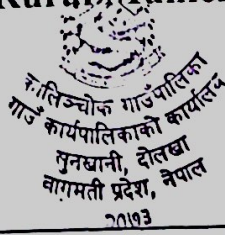 कालिञ्चोक गाउँपालिका
गाउँ कार्यपालिकाको कार्यालय
सुनखानी, दोलखा
वागमती प्रदेश, नेपाल
२०७३